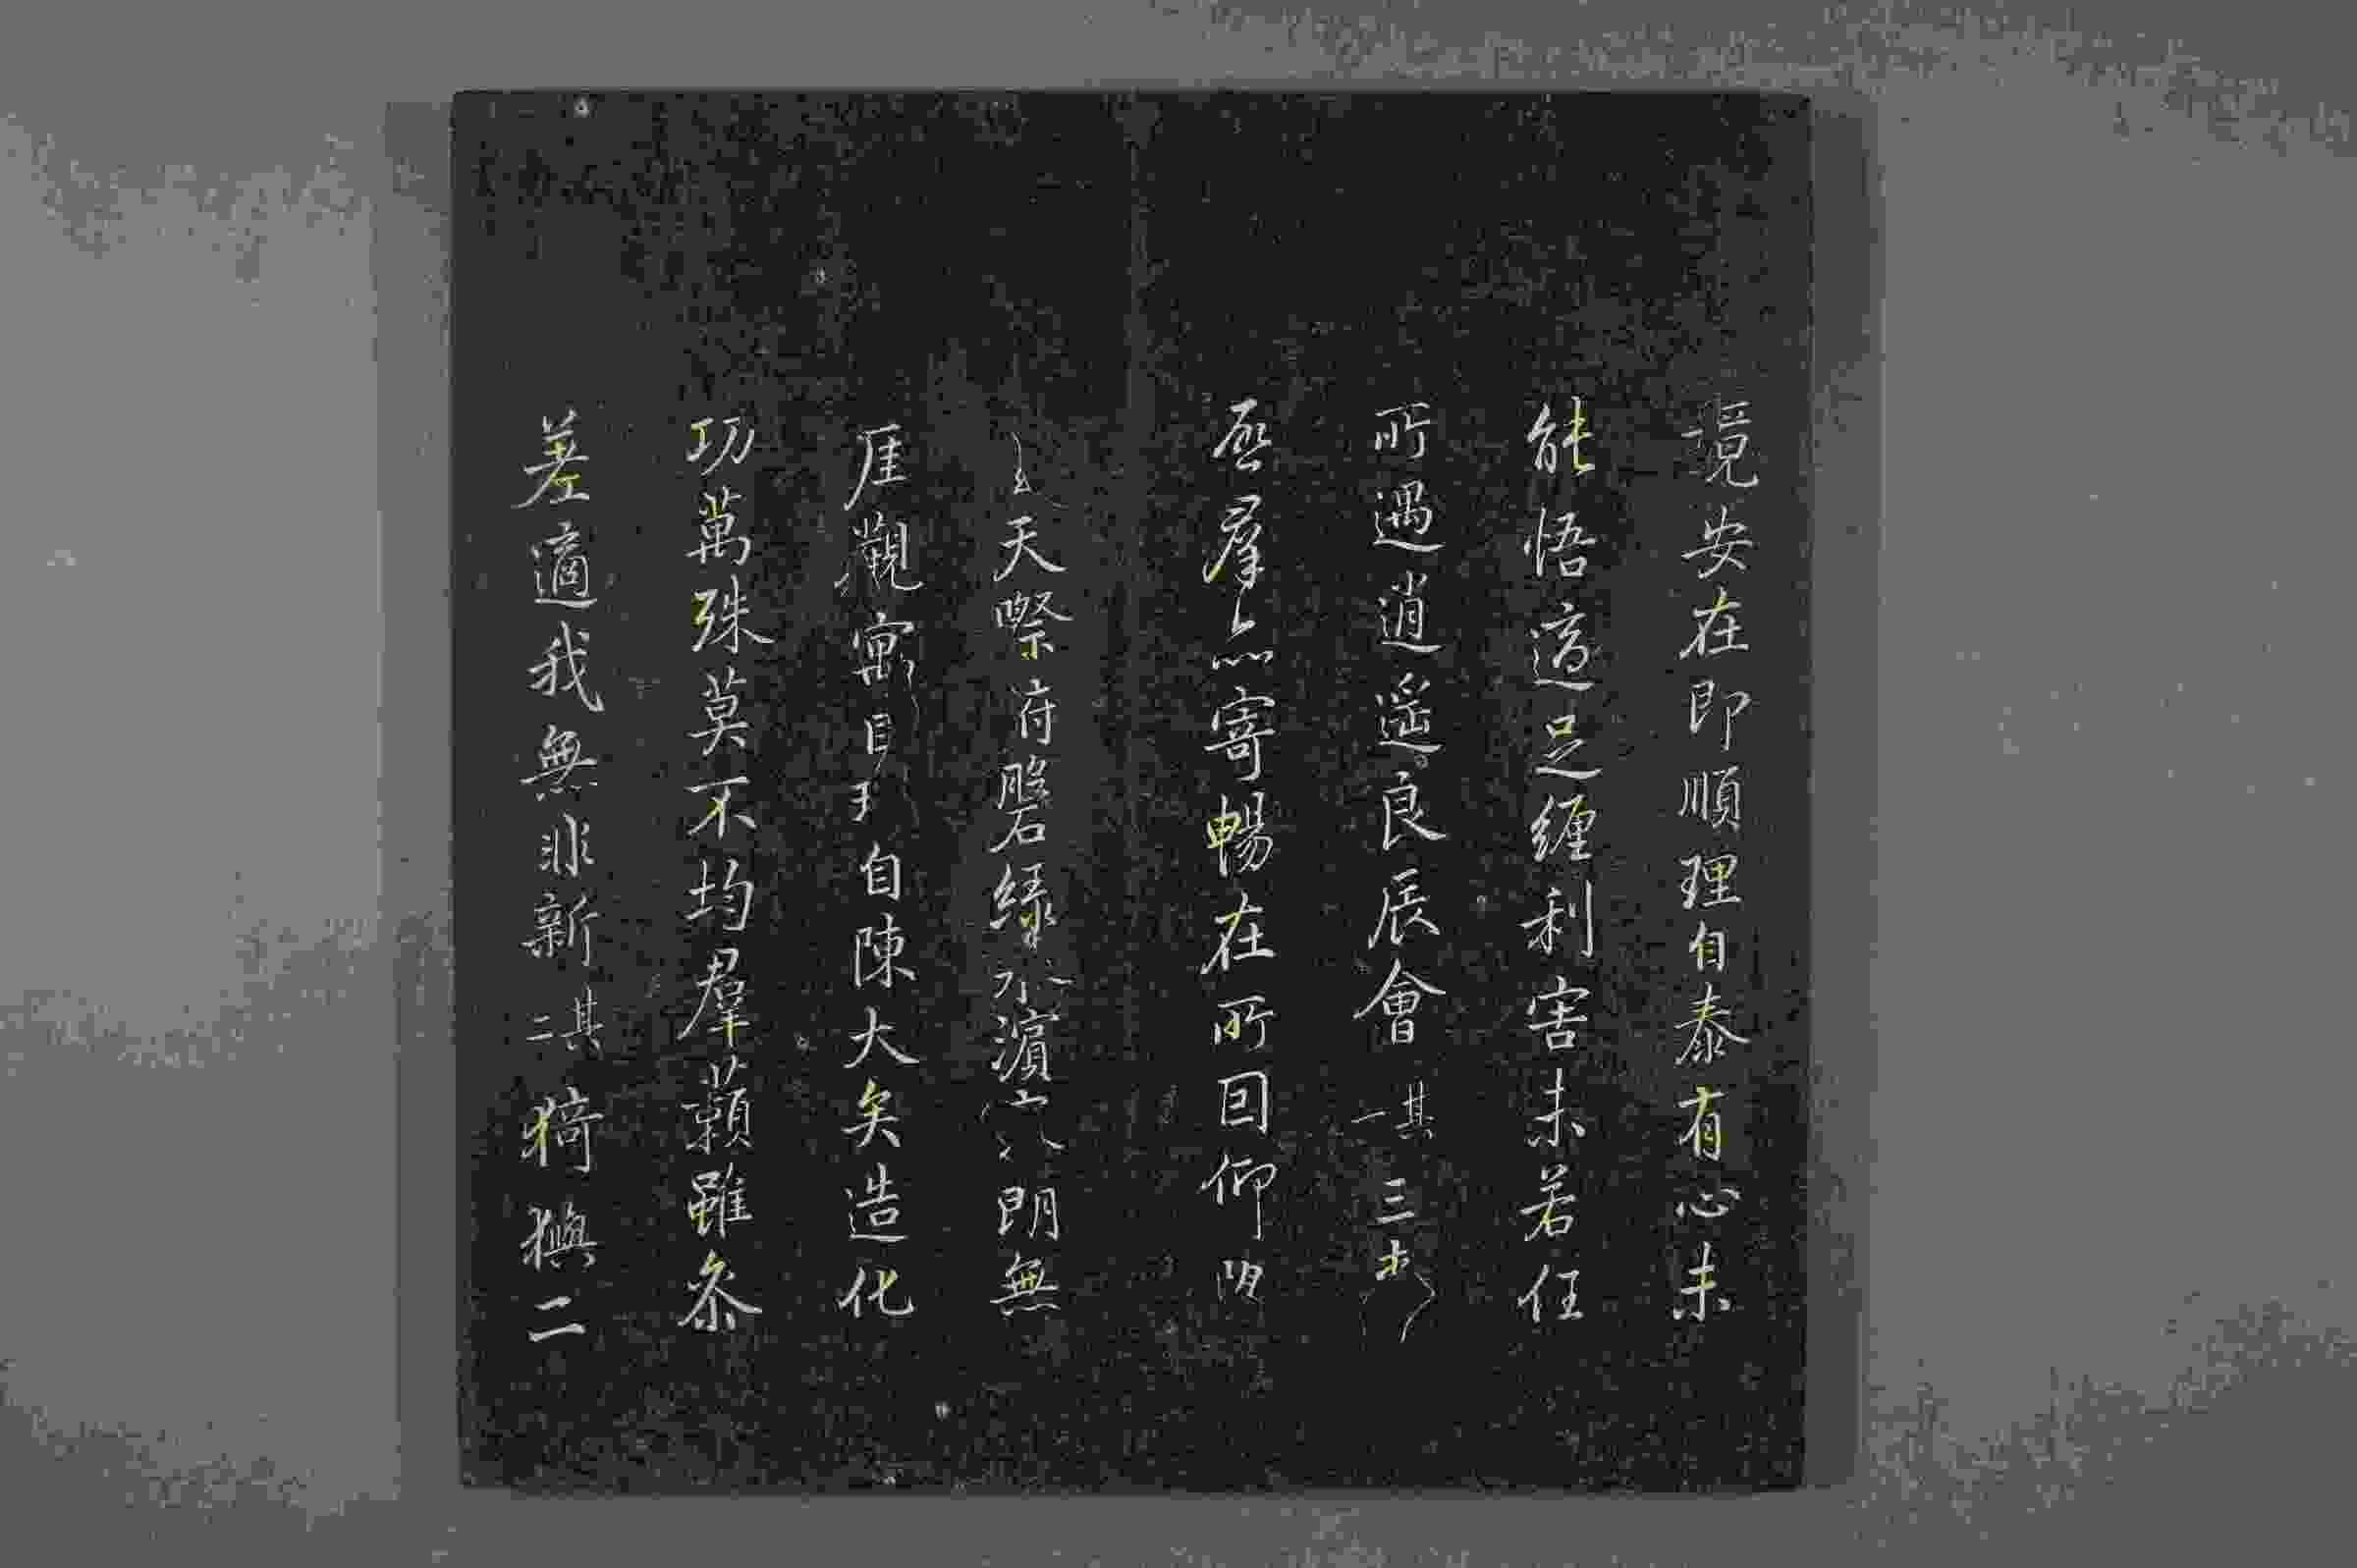 境安在即順理自泰有心未
能悟適足纏利害未若任
所遇逍遥良辰會其一三
群寄暢在所因仰
天際府磐緑濱朗無
厓觀寓目自陳大矣造化
功萬殊莫不均群藾雖参
差適我無非新其二猗歟二